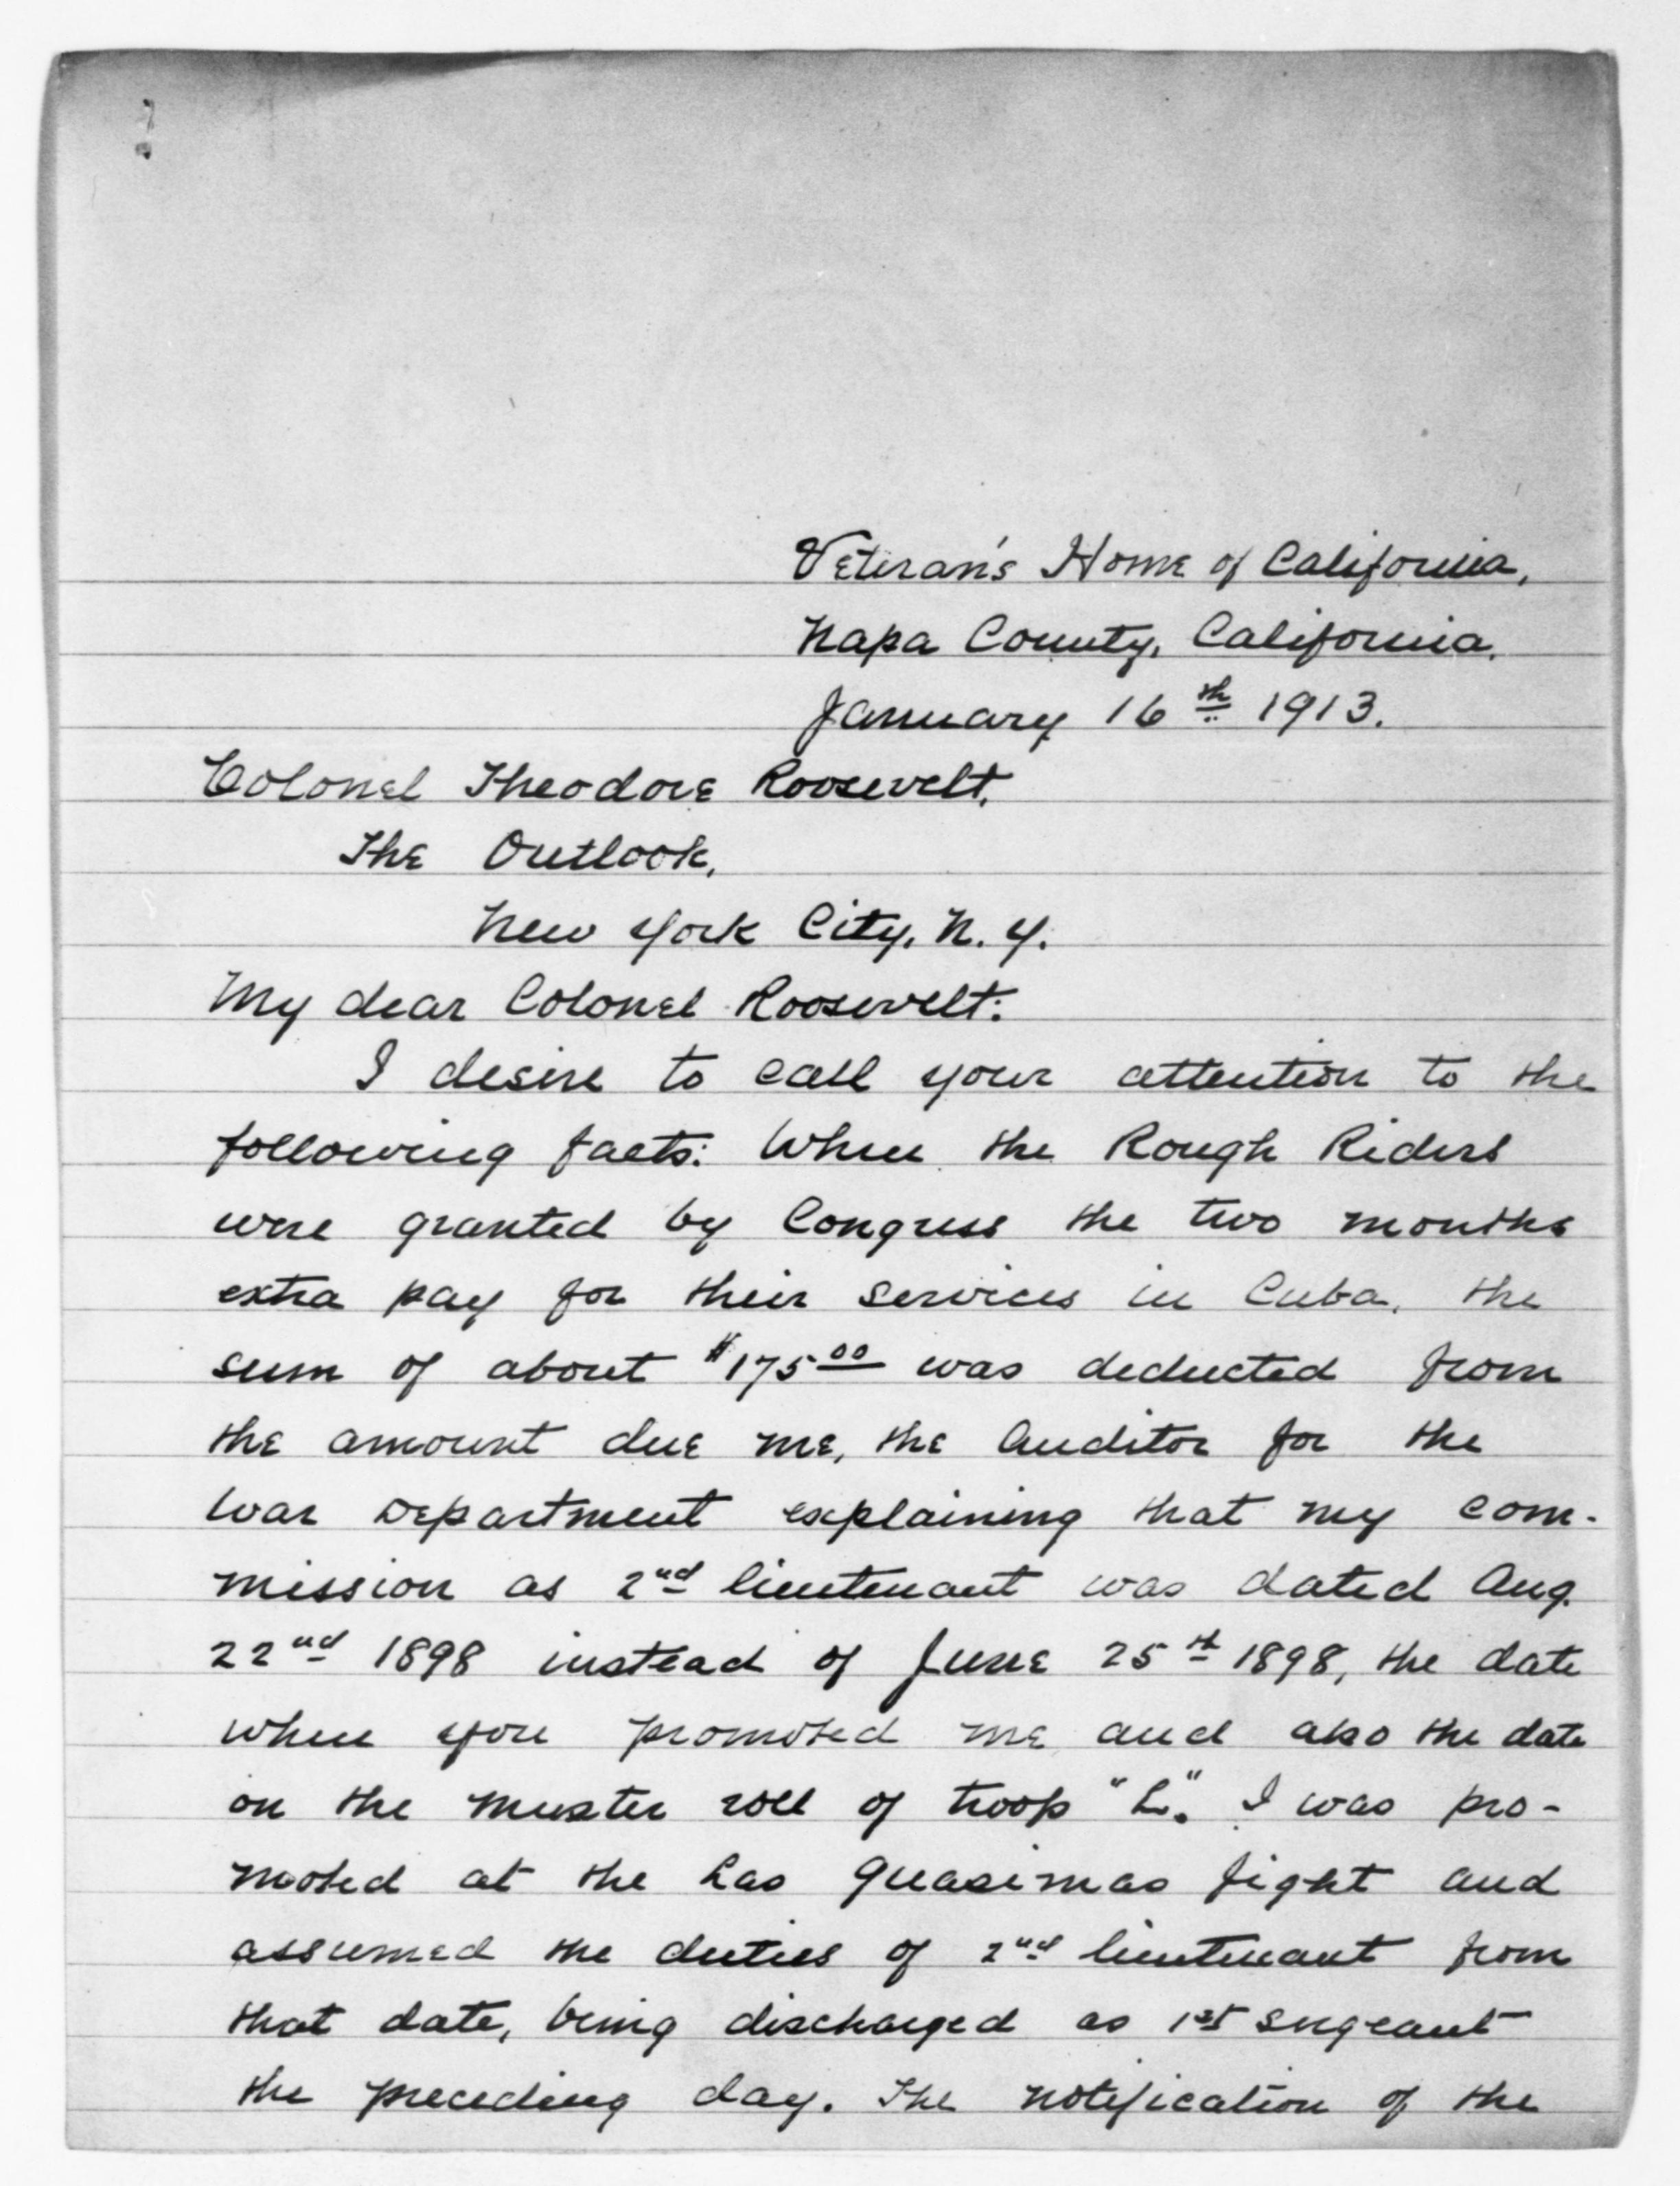 Veteran's Home of California,
Napa County, California.
January 16th 1913.
Colonel Theodore Roosevelt,
The Outlook,
New York City, N. Y.
My dear Colonel Roosevelt:
I desire to call your attention to the
following facts: When the Rough Riders
were granted by Congress the two months
extra pay for their services in Cuba, the
sum of about $175 00 was deducted from
the amount due me, the Auditor for the
War Department explaining that my com-
mission as 2nd lieutenant was dated Aug.
22nd 1898 instead of June 25th 1898, the date
when you promoted me and also the date
on the muster roll of troop "L". I was pro-
moted at the Las Guasimas fight and
assumed the duties of 2nd lieutenant from
that date, being discharged as 1st sergeant
the preceding day. The notification of the